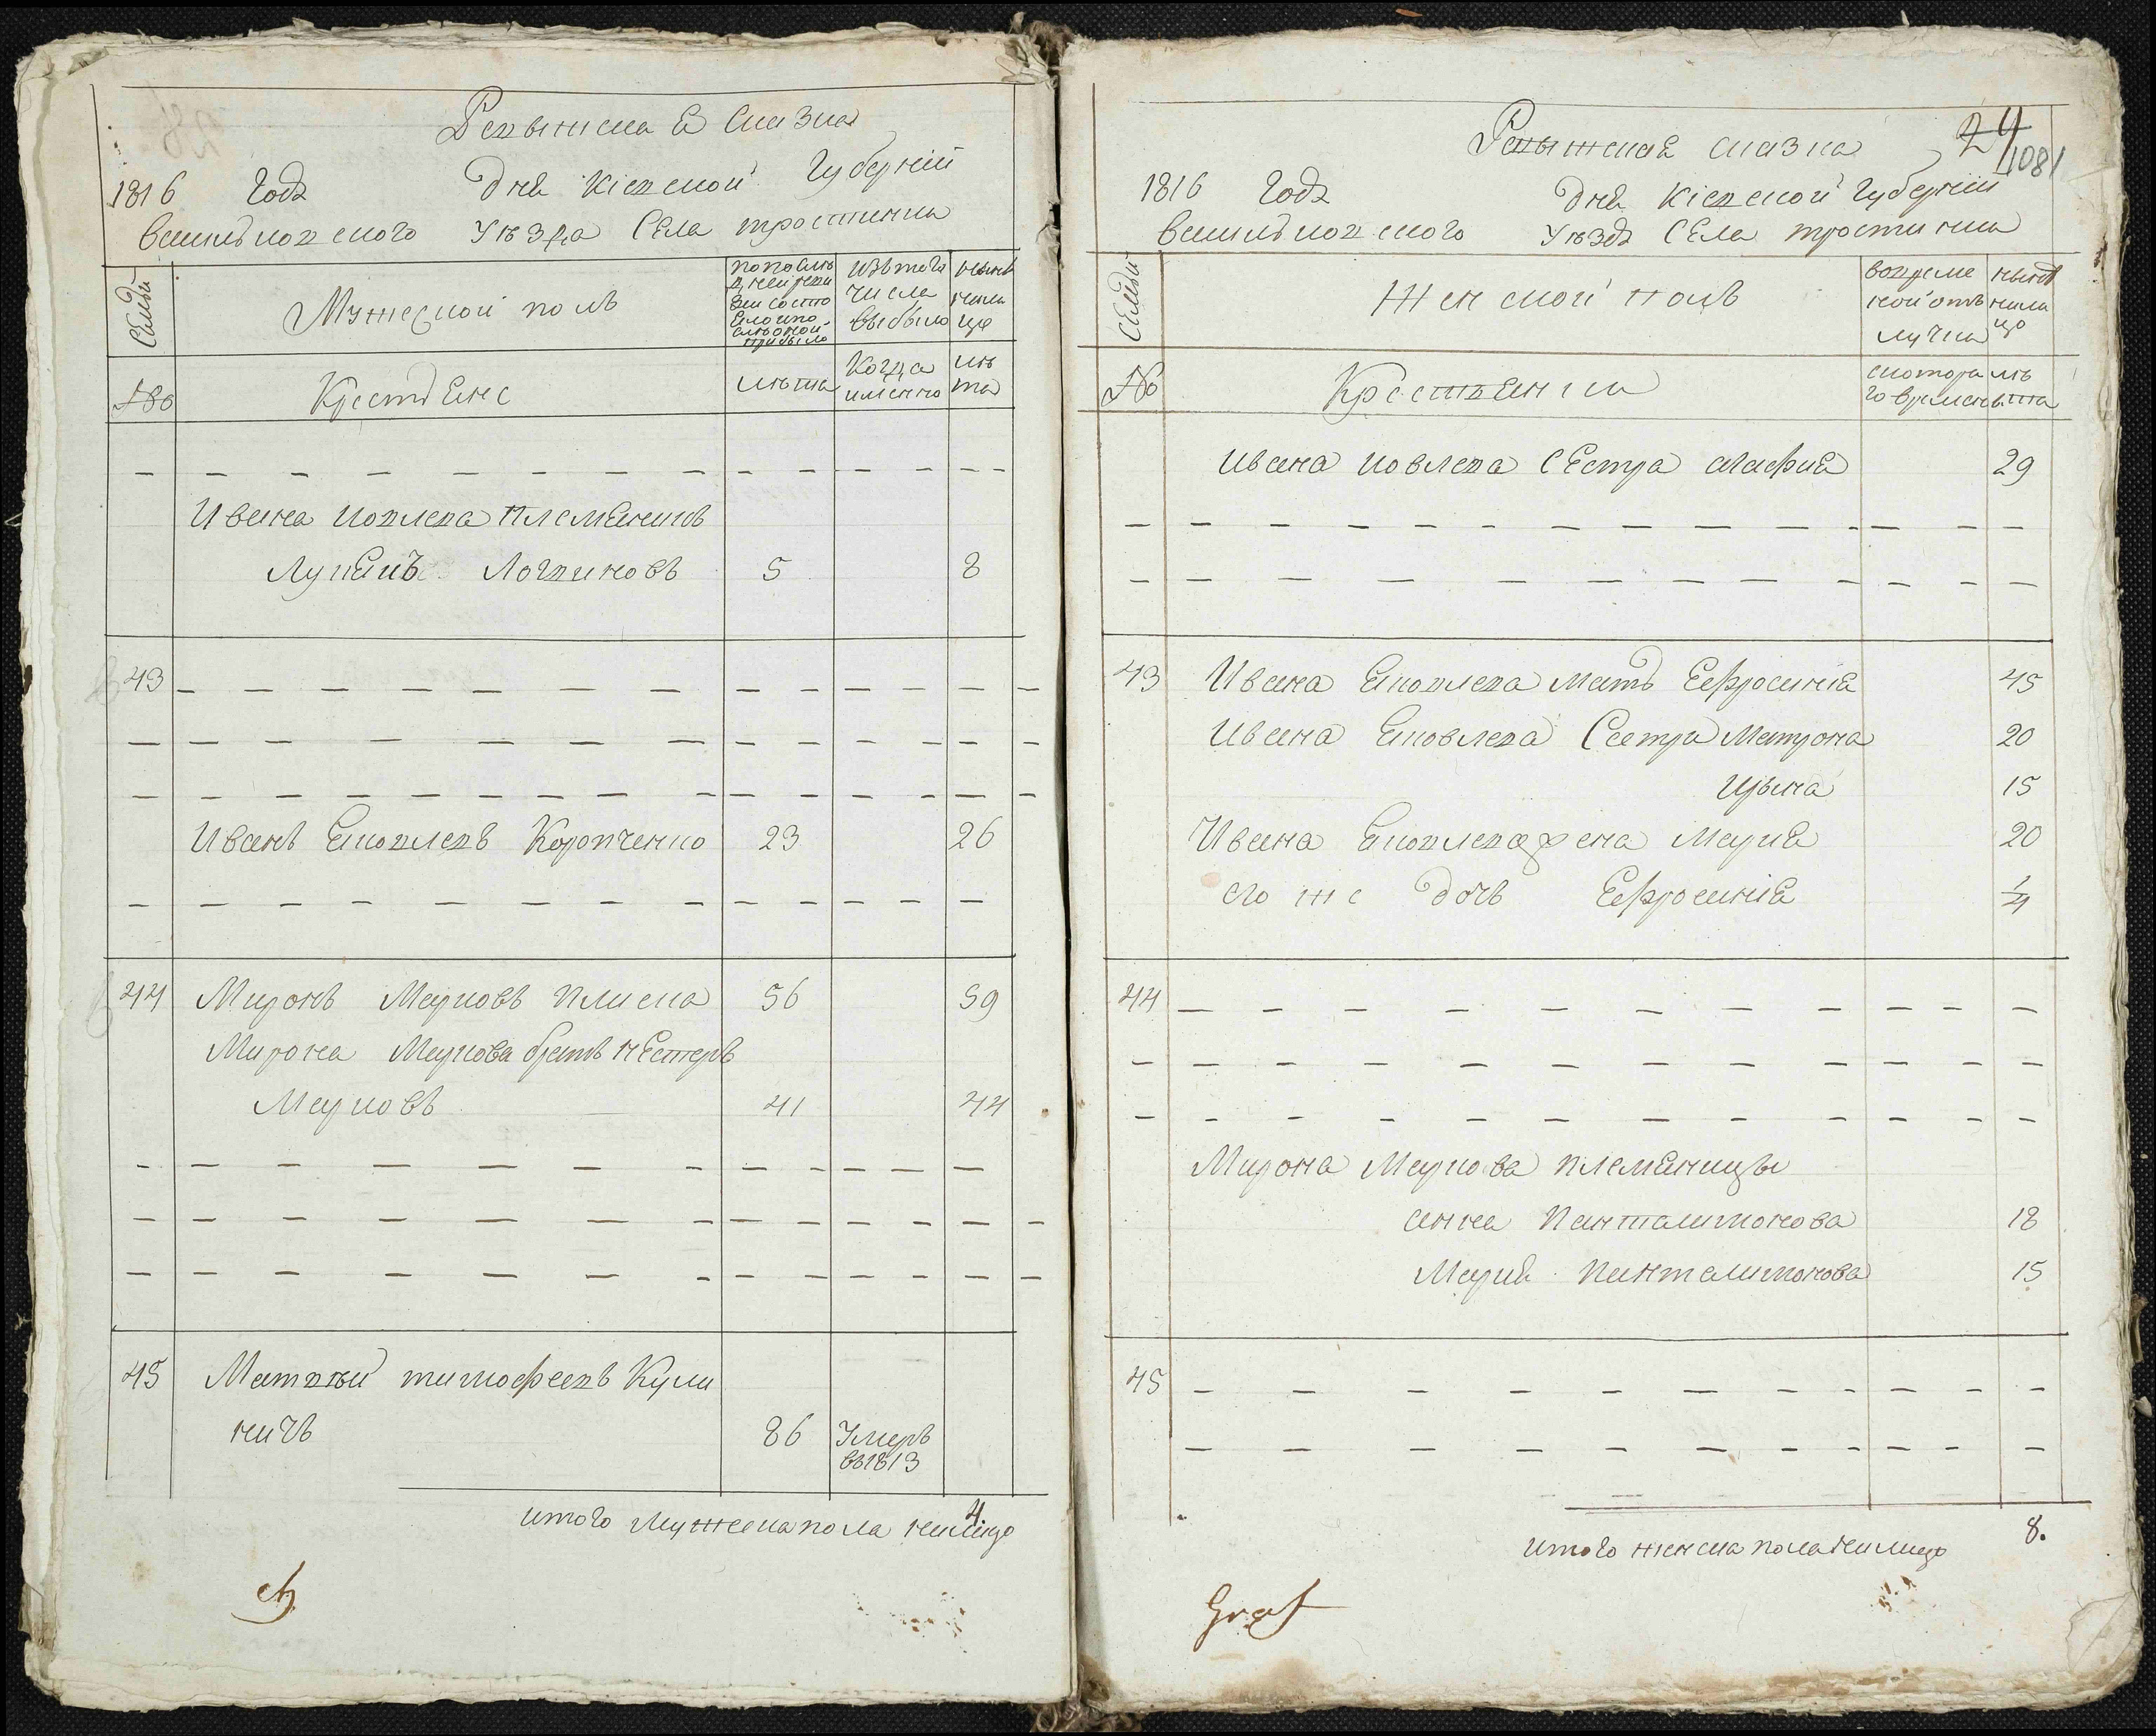 Ревижская Сказка
1816 Года Дня Кіевской Губерніи
васильковского Уѣзда Села тростинки
Семьи
Мужеской полъ
по послѣ
дней реви
зіи состо
яло и по
слѣ оной
прибыло
изъ того
числа
выбыло
нынѣ
на ли
цо
№
Крестьяне
лѣта
Когда
именно
лѣ
та
Ивана иовлева племянникъ
Лукіянъ Логвиновъ 5 8
43
Иванъ Яковлевъ Коропченко 23 26
44 Миронъ Марковъ Плиска 56 59
Мирона Маркова братъ нестеръ
Марковъ 41 44
45 Матвѣй тимофеевъ Кули
ничъ 86 Умеръ
въ 1813
итого мужеска пола налицо 4.
Ревижская сказка 24
1081
1816 Года Дня Кіевской Губерніи
васильковского Уѣзда Села тростинки
семьи
Женской полъ
во време
ной отъ
лучки
нынѣ
нали
цо
№
Крестьянки
с котора
го времени
лѣ
та
Ивана иовлева сестра агафия 29
43 Ивана Яковлева мать Ефросинія 45
Ивана Яковлева Сестра Матрона 20
Ирина 15
Ивана Яковлева жена Мария 20
его же дочь Ефросинія 1/4
44
Мирона Маркова племяницы
анна Панталимонова 18
Мария Панталимонова 15
45
итого женска пола налицо 8.
Graf